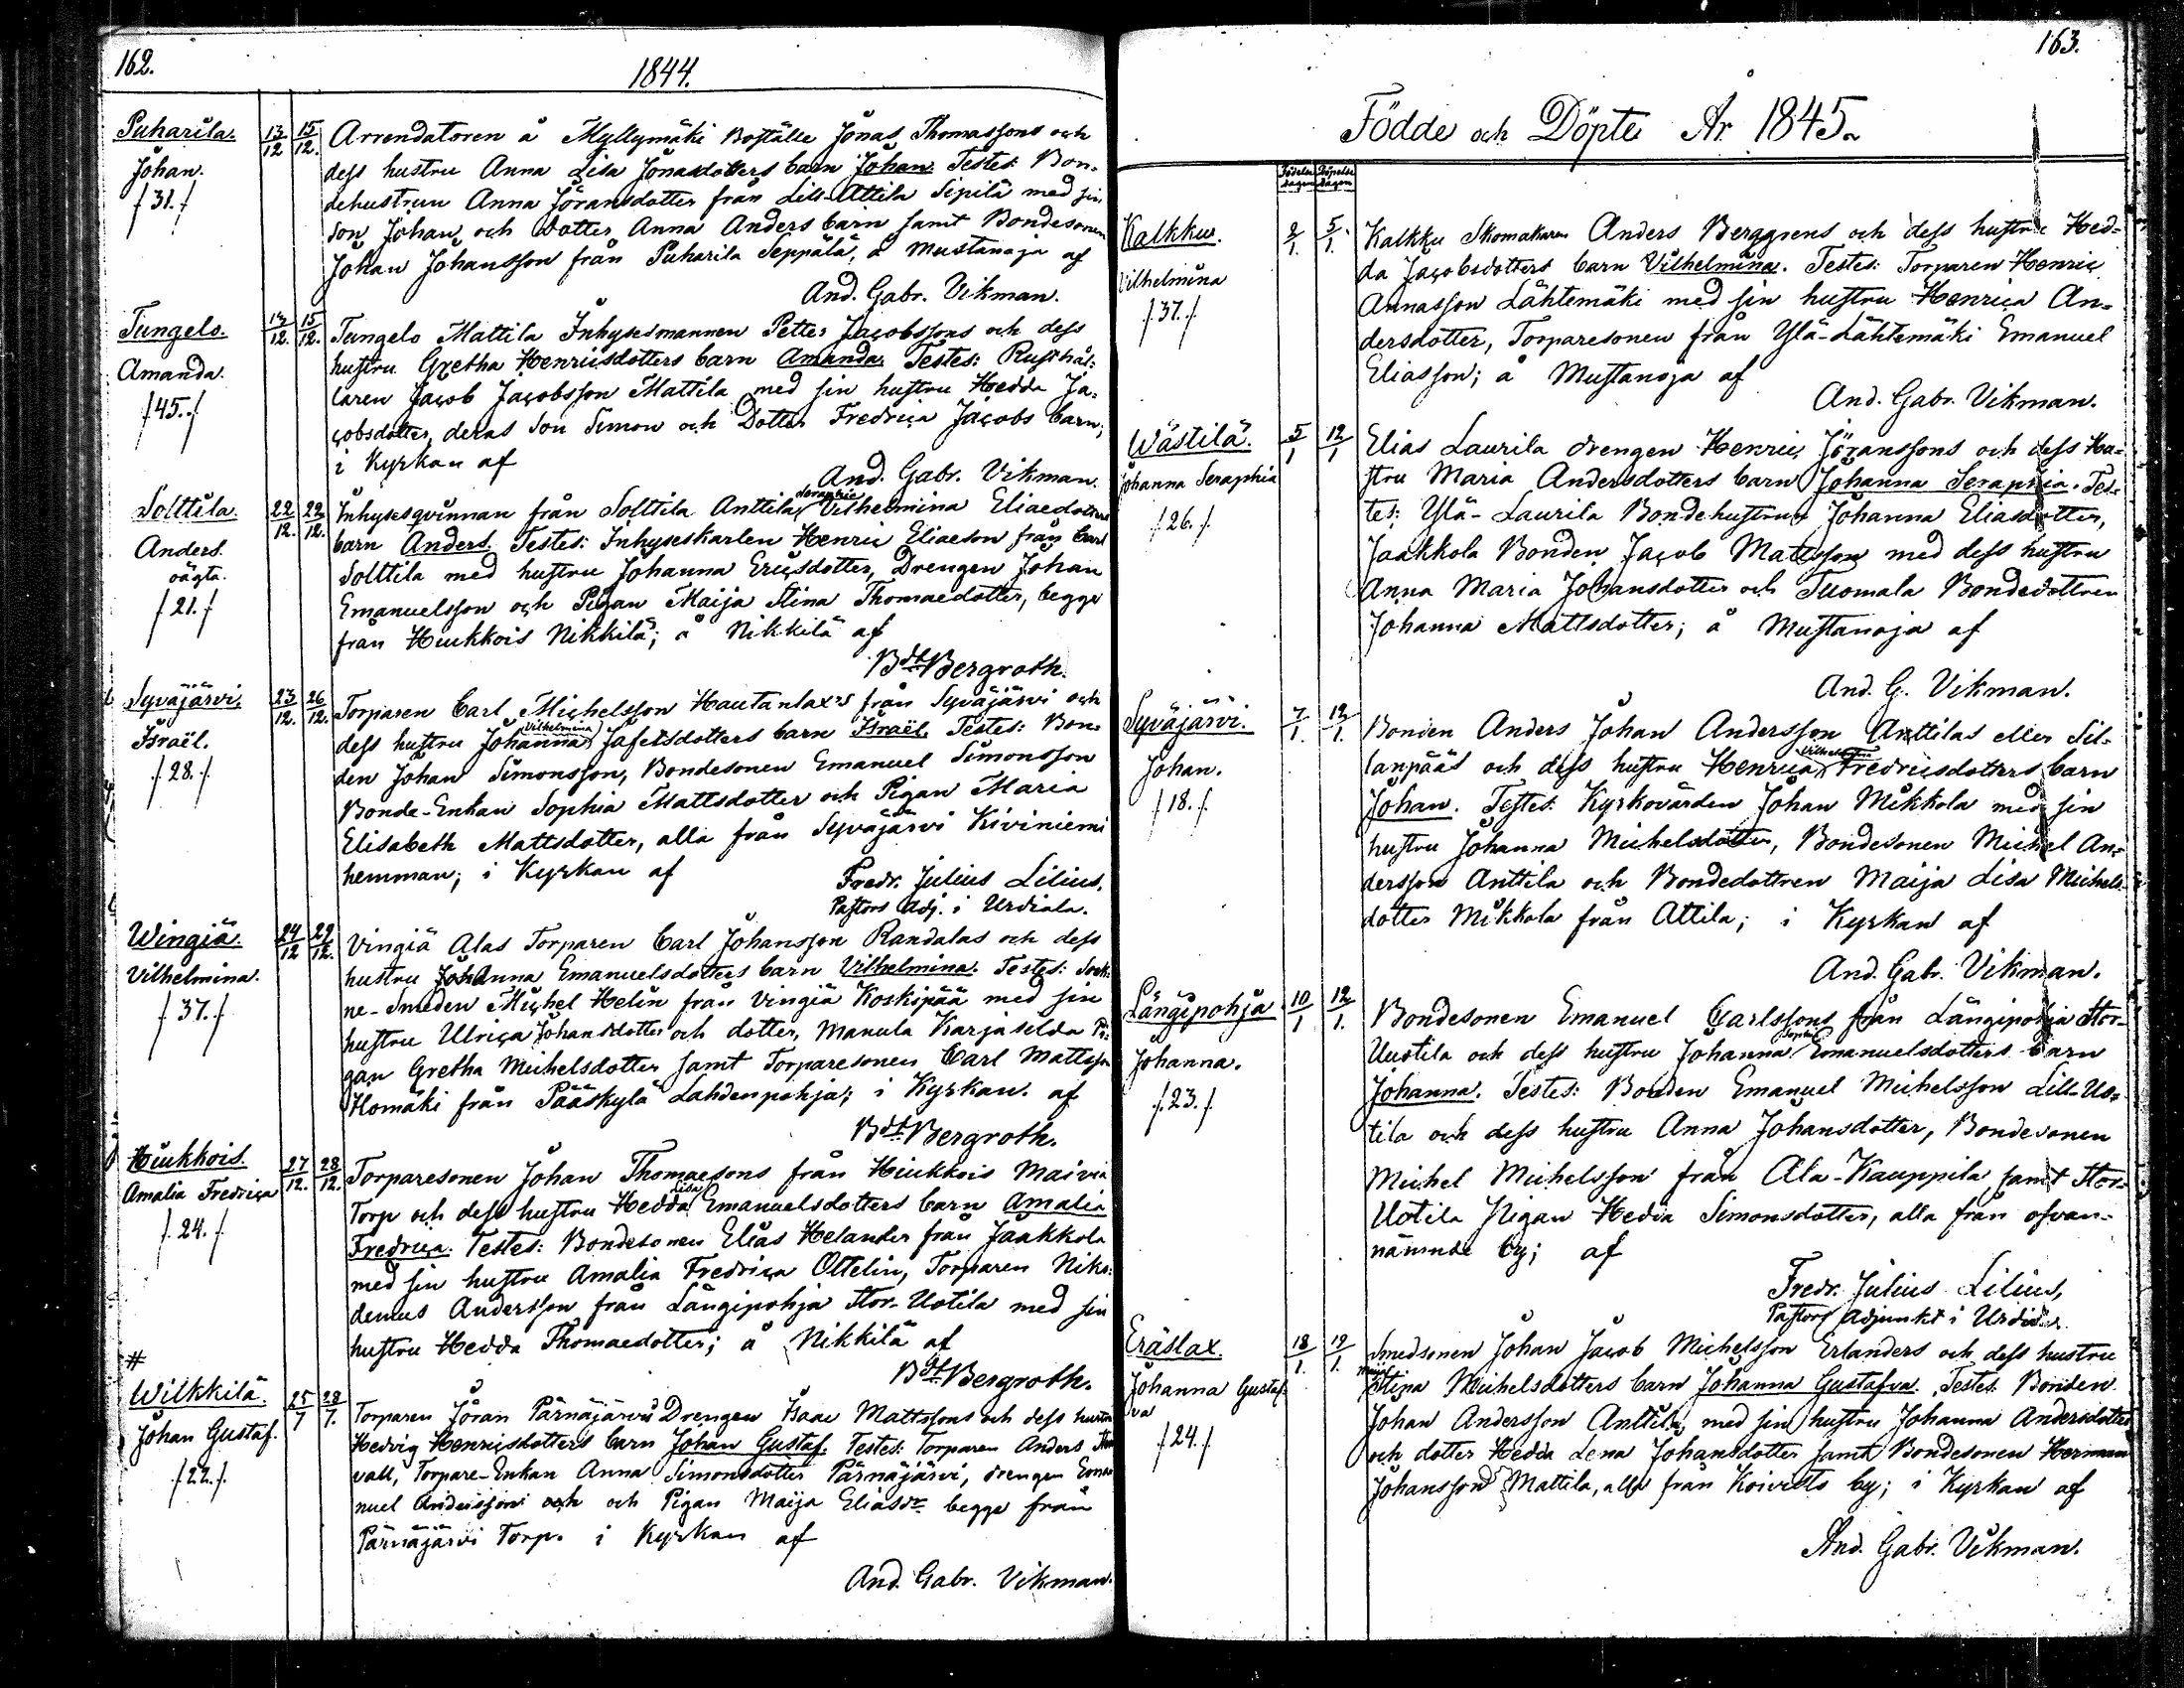 162.
1844.
Puharila.
Johan.
/31./
13/12 15/12.
Arrendatoren å Myllymäki Boställe Jonas Thomassons och
dess hustru Anna Lisa Jonasdotters barn Johan. Testes: Bon-
dehustrun Anna Jöransdotter från Lill-Attila Sipilä med sin
son Johan och Dotter Anna Anders barn samt Bondesonen
Johan Johansson från Puharila Seppälä, å Mustanoja af
And. Gabr. Vikman.
Tungelo.
Amanda.
/45./
13/12. 15/12.
Tungelo Mattila Inhysesmannen Petter Jacobssons och dess
hustru Gretha Henricsdotters barn Amanda. Testes: Rusthål-
laren Jacob Jacobsson Mattila med sin hustru Hedda Ja-
cobsdotter, deras Son Simon och Dotter Fredrica Jacobs barn;
i Kyrkan af
And. Gabr. Vikman.
Solttila.
Anders.
oägta.
/21./
22/12. 22/12.
Inhysesqvinnan från Solttila Anttila Seraphia Vilhelmina Eliaedotters
barn Anders. Testes: Inhyseskarlen Henric Eliaeson från Carl
Solttila med hustru Johanna Ericsdotter, Drengen Johan
Emanuelsson och Pigan Maija Stina Thomaedotter, begge
från Huukkois Nikkilä; å Nikkilä af
Bdt Bergroth.
Syväjärvi.
Israël.
/28./
23/12. 26/12.
Torparen Carl Michelsson Hautanlax's från Syväjärvi och
dess hustru Johanna Vilhelmina Jafetsdotters barn Israël. Testes: Bon-
den Johan Simonsson, Bondesonen Emanuel Simonsson
Bonde-Enkan Sophia Mattsdotter och Pigan Maria
Elisabeth Mattsdotter, alla från Syväjärvi Kiviniemi
hemman; i Kyrkan af
Fredr. Julius Lilius,
Pastors Adj. i Urdiala.
Wingiä.
Vilhelmina.
/37./
24/12 29/12.
Vingiä Alas Torparen Carl Johansson Randalas och dess
hustru Johanna Emanuelsdotters barn Vilhelmina. Testes: Sock-
ne-Smeden Michel Helin från Vingiä Koskipää med sin
hustru Ulrica Johansdotter och dotter, Manula Karjaselda Pi-
gan Gretha Michelsdotter samt Torparesonen Carl Mattsson
Homäki från Pääskylä Lahdenpohja; i Kyrkan. af
Bdt Bergroth.
Huukkois.
Amalia Fredrica
/24./
27/12. 28/12.
Torparesonen Johan Thomaesons från Huukkois Maivia
Torp och dess hustru Hedda Lisa Emanuelsdotters barn Amalia
Fredrica. Testes: Bondesonen Elias Helander från Jaakkola
med sin hustru Amalia Fredrica Ottelin, Torparen Niko-
demus Andersson från Långipohja Stor-Uotila med sin
hustru Hedda Thomaedotter; å Nikkilä af
Bdt Bergroth.
#
Wilkkilä.
Johan Gustaf.
/22./
25/7 28/7.
Torparen Jöran Pärnäjärvis Drengen Isaac Mattssons och dess hustru
Hedvig Henricsdotters barn Johan Gustaf. Testes: Torparen Anders
vall, Torpare-Enkan Anna Simonsdotter Pärnäjärvi, drengen Ema-
nuel Andersson och och Pigan Maija Eliasdr begge från
Pärnäjärvi Torp. i Kyrkan af
And. Gabr. Vikman.
163.
Födde och Döpte År 1845.
Födelse dagen Döpelse dagen
Kalkku.
Vilhelmina
/37./
2/1. 5/1.
Kalkku Skomakaren Anders Berggrens och dess hustru Hed-
da Jacobsdotters barn Vilhelmina. Testes: Torparen Henric
Annasson Lähtemäki med sin hustru Henrica An-
dersdotter, Torparesonen från Ylä-Lähtemäki Emanuel
Eliasson; å Mustanoja af
And. Gabr. Vikman.
Wästilä.
Johanna Seraphia
/26./
5/1 12/1
Elias Laurila drengen Henric Jöranssons och dess Hu-
stru Maria Andersdotters barn Johanna Seraphia. Tes-
tes: Ylä-Laurila Bondehustrun Johanna Eliasdotter,
Jaakkola Bonden Jacob Mattsson med dess hustru
Anna Maria Johansdotter och Tuomala Bondedottren
Johanna Mattsdotter; å Mustanoja af
And. G. Vikman.
Syväjärvi.
Johan.
/18./
7/1. 12/1.
Bonden Anders Johan Andersson Anttilas eller Sil-
lanpääs och dess hustru Henrica Vilhelmina Fredricsdotters barn
Johan. Testes: Kyrkovärden Johan Mikkola med sin
hustru Johanna Michelsdotter, Bondesonen Michel An-
dersson Anttila och Bondedottren Maija Lisa Michels-
dotter Mikkola från Attila; i Kyrkan af
And. Gabr. Vikman.
Långipohja
Johanna.
/23./
10/1 12/1.
Bondesonen Emanuel Carlssons från Långipohja Stor-
Uuotila och dess hustru Johanna Sophia Emanuelsdotters barn
Johanna. Testes: Bonden Emanuel Michelsson Lill-Uo-
tila och dess hustru Anna Johansdotter, Bondesonen
Michel Michelsson från Ala-Kauppila samt Stor-
Uotila Pigan Hedda Simonsdotter, alla från ofvan-
nämnde by; af
Fredr. Julius Lilius,
Pastors Adjunkt i Urdiala.
Eräslax.
Johanna Gustaf-
va
/24./
18/1. 19/1.
Smedsonen Johan Jacob Michelsson Erlanders och dess hustru
Maija Stina Michelsdotters barn Johanna Gustafva. Testes. Bonden
Johan Andersson Anttila, med sin hustru Johanna Andersdotter
och dotter Hedda Lena Johansdotter samt Bondesonen Herman
Johansson Mattila, alla från Koivisto by; i Kyrkan af
And. Gabr. Vikman.